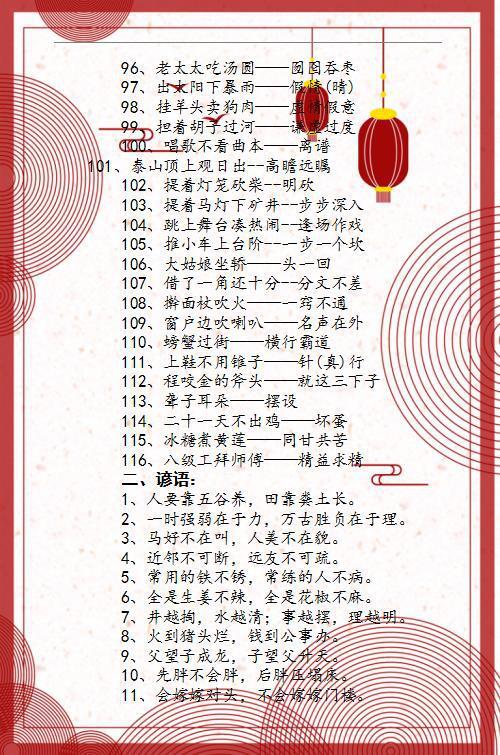 96、老太太吃汤圆——囫囵吞枣
97、出太阳下暴雨——假情(晴)
98、挂羊头卖狗肉——虚情假意
99、担着胡子过河——谦虚过度
100、唱歌不看曲本——离谱
101、泰山顶上观日出--高瞻远瞩
102、提着灯笼砍柴--明砍
103、提着马灯下矿井--步步深入
104、跳上舞台凑热闹--逢场作戏
105、推小车上台阶--一步一个坎
106、大姑娘坐轿——头一回
107、借了一角还十分--分文不差
108、擀面杖吹火——一窍不通
109、窗户边吹喇叭——名声在外
110、螃蟹过街——横行霸道
111、上鞋不用锥子——针(真)行
112、程咬金的斧头——就这三下子
113、聋子耳朵——摆设
114、二十一天不出鸡——坏蛋
115、冰糖煮黄莲——同甘共苦
116、八级工拜师傅——精益求精
二、谚语:
1、人要靠五谷养，田靠粪土长。
2、一时强弱在于力，万古胜负在于理。
3、马好不在叫，人美不在貌。
4、近邻不可断，远友不可疏。
5、常用的铁不锈，常练的人不病。
6、全是生姜不辣，全是花椒不麻。
7、井越掏，水越清；事越摆，理越明。
8、火到猪头烂，钱到公事办。
9、父望子成龙，子望父升天。
10、先胖不会胖，后胖压塌床。
11、会嫁嫁对头，不会嫁嫁门楼。